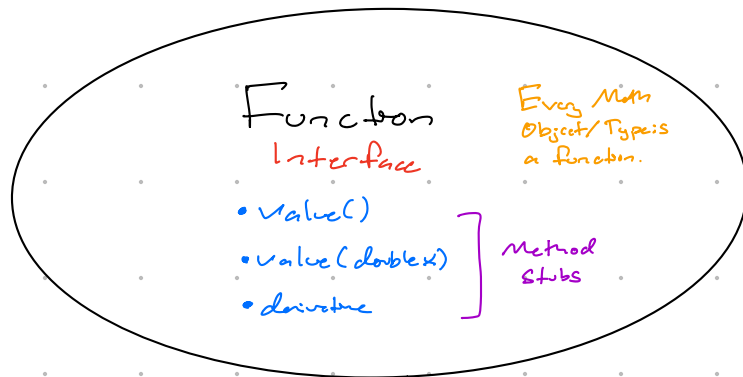 Function
Interface
Every Math
Object/Type is
a function.
• value()
• value(double x)
• derivative
Method
Stubs